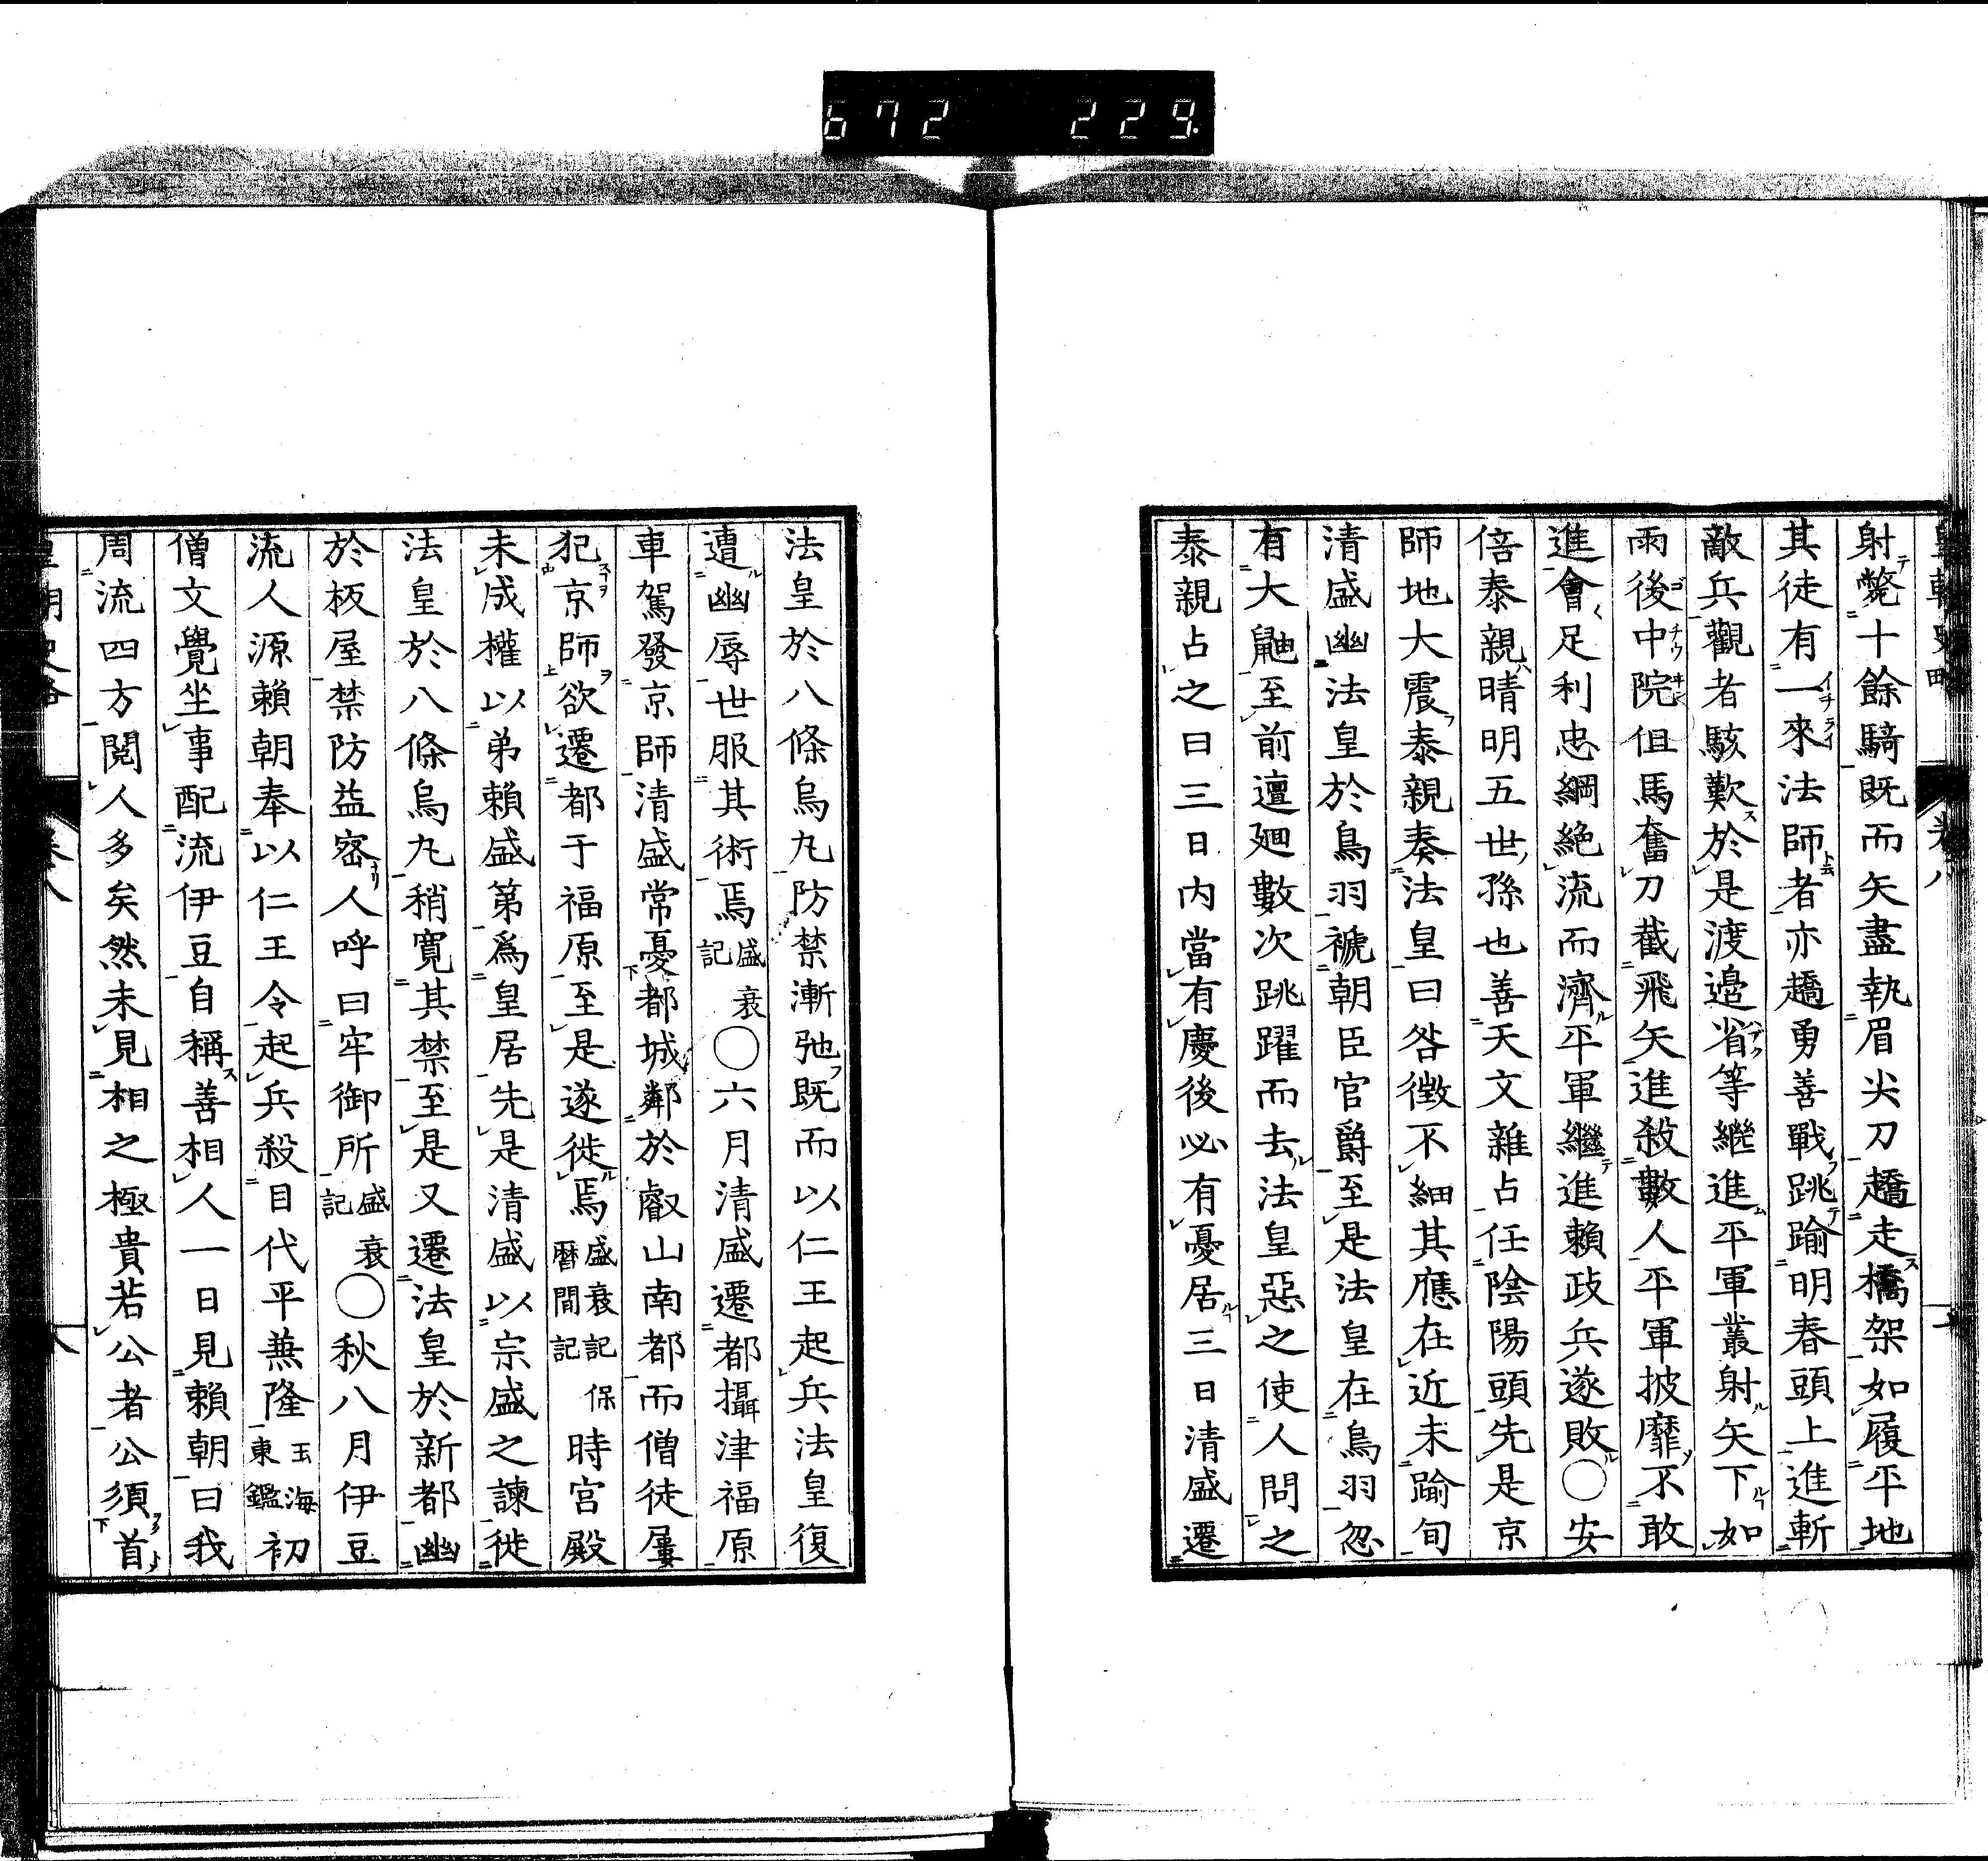 672 229
射斃十餘騎既而矢盡執眉尖刀趫走橋架如履平地
其徒有一來法師者亦趫勇善戰跳踰明春頭上進斬
敵兵觀者駭歎於是渡邉省等繼進平軍叢射矢下如
雨後中院但馬奮刀截飛矢進殺數人平軍披靡不敢
進會足利忠綱絶流而濟平軍繼進賴政兵遂敗〇安
倍泰親晴明五世孫也善天文雜占任陰陽頭先是京
師地大震泰親奏法皇曰咎徴不細其應在近未踰旬
清盛幽法皇於鳥羽褫朝臣官爵至是法皇在鳥羽忽
有大鼬至前邅廻數次跳躍而去法皇惡之使人問之
泰親占之曰三日内當有慶後必有憂居三日清盛遷
法皇於八條烏丸防禁漸弛既而以仁王起兵法皇復
遭幽辱世服其術焉盛衰記〇六月清盛遷都攝津福原
車駕發京師清盛常憂都城鄰於叡山南都而僧徒屢
犯京師欲遷都于福原至是遂徙焉盛衰記保暦間記時宮殿
未成權以弟賴盛第爲皇居先是清盛以宗盛之諫徙
法皇於八條烏丸稍寬其禁至是又遷法皇於新都幽
於板屋禁防益密人呼曰牢御所盛衰記〇秋八月伊豆
流人源賴朝奉以仁王令起兵殺目代平兼隆玉海東鑑初
僧文覺坐事配流伊豆自稱善相人一日見賴朝曰我
周流四方閲人多矣然未見相之極貴若公者公須首